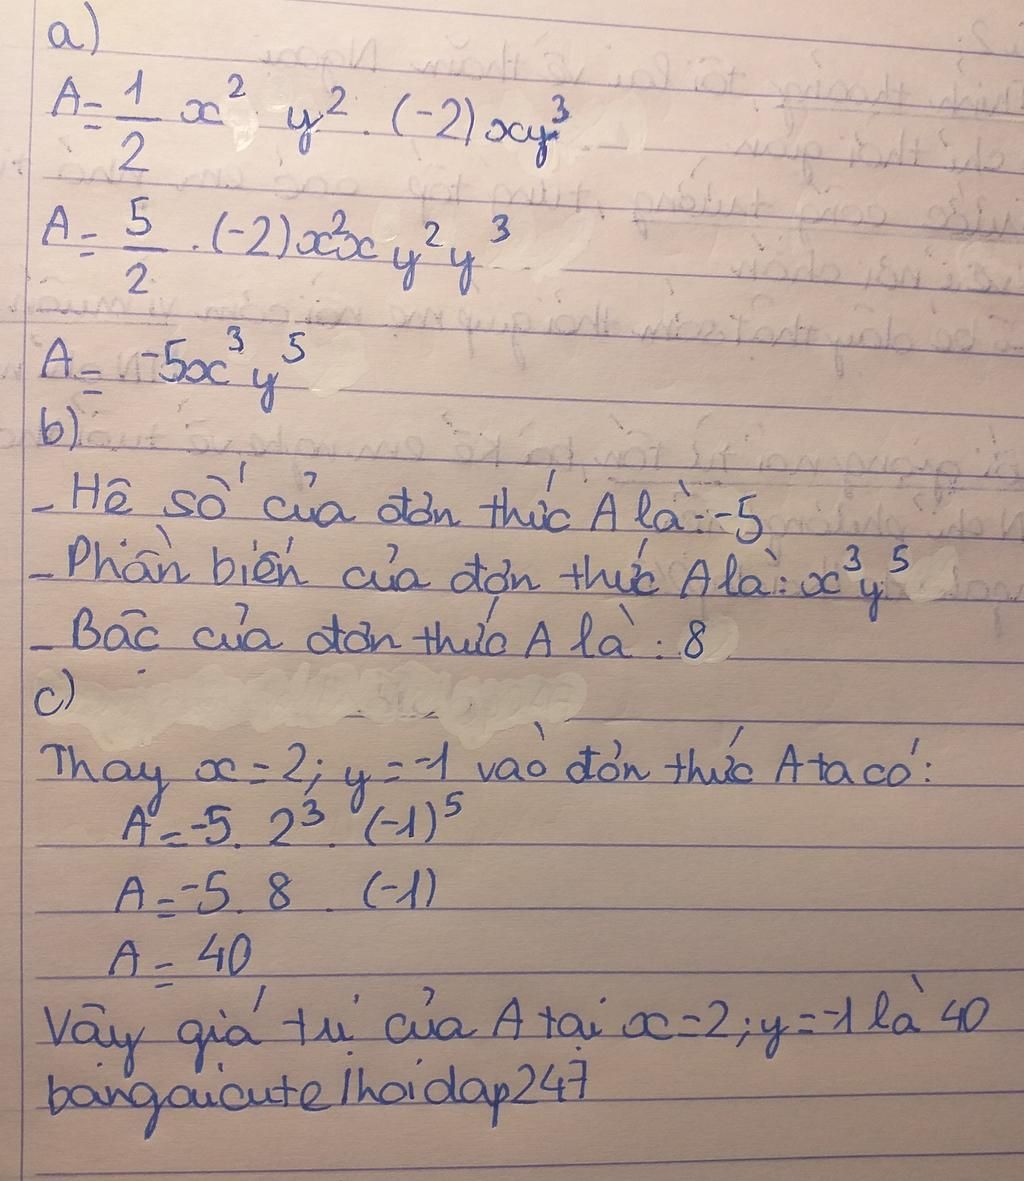 a)
A = 1/2 x² y² . (-2) xy³
A = 5/2 . (-2) x²x y² y³
A = -5x³ y⁵
b)
- Hệ số của đơn thức A là: -5
- Phần biến của đơn thức A là: x³y⁵
- Bậc của đơn thức A là : 8
c)
Thay x = 2; y = -1 vào đơn thức A ta có:
A = -5. 2³. (-1)⁵
A = -5. 8 . (-1)
A = 40
Vậy giá trị của A tại x = 2; y = -1 là 40
bangaicute/hoidap247